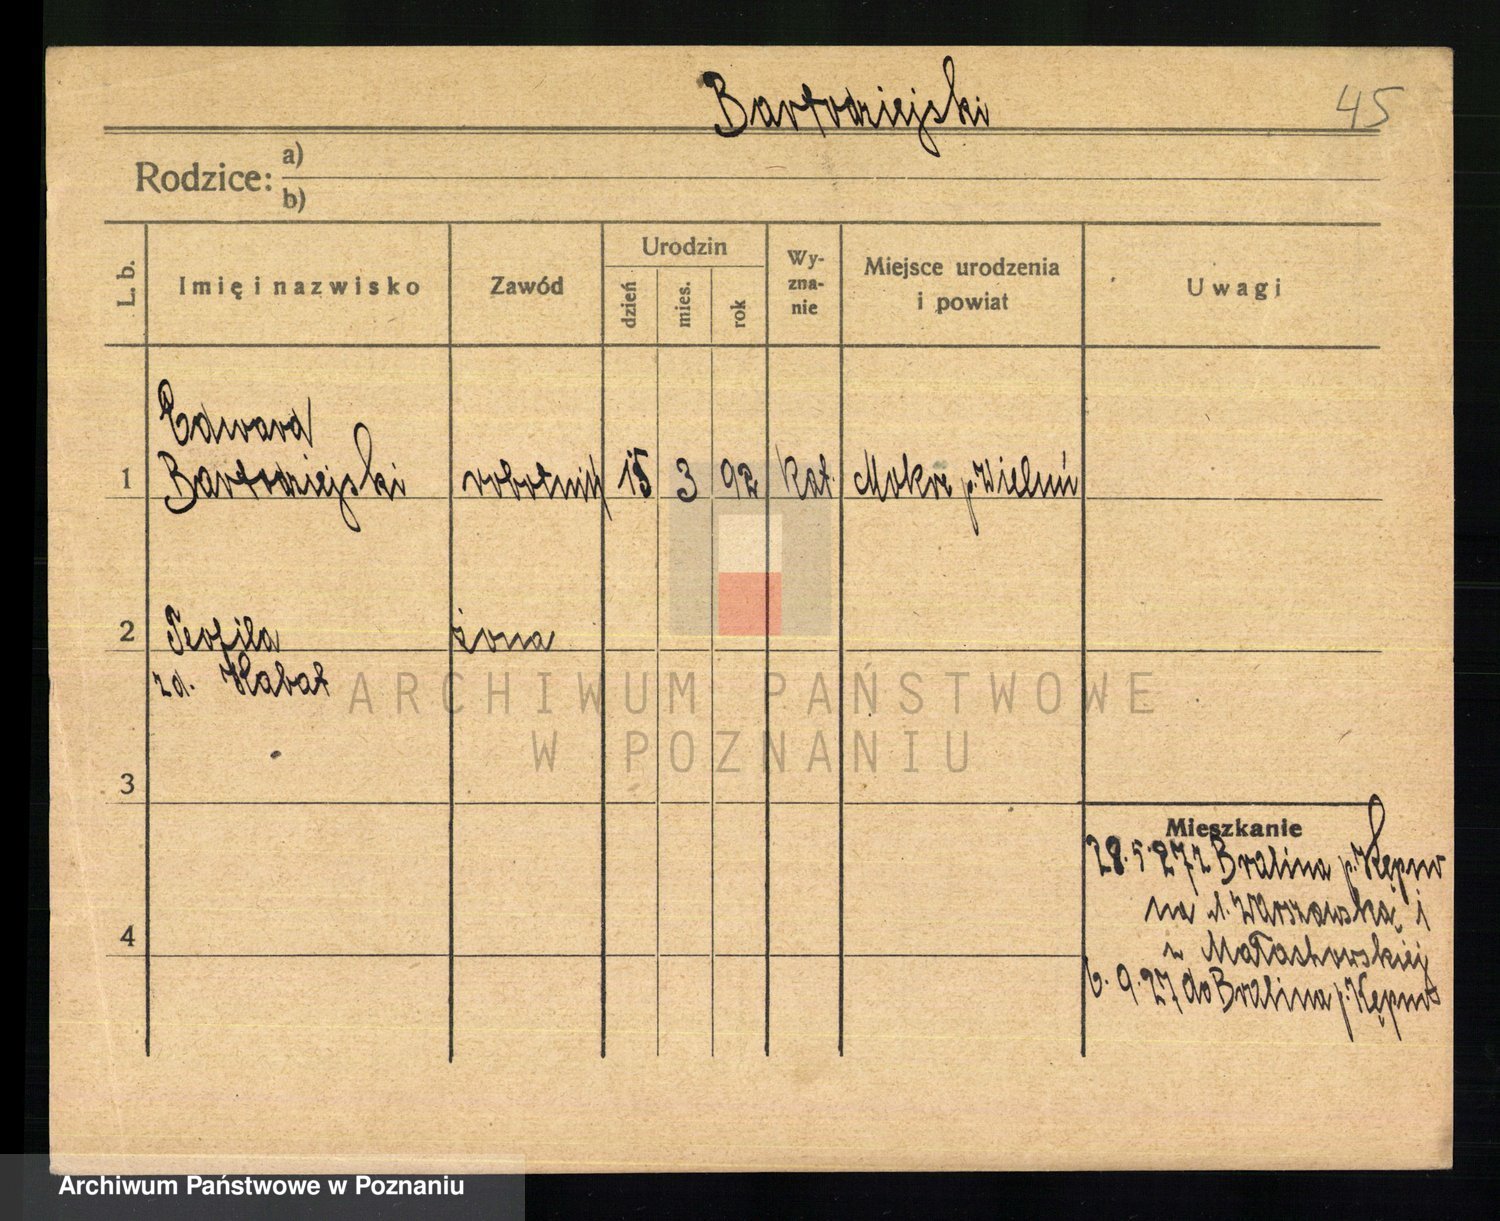 Bartodziejski 45
Rodzice: a)
b)
L. b. Imię i nazwisko Zawód Urodzin dzień mies. rok Wy-zna-nie Miejsce urodzenia i powiat Uwagi
Edward
1 Bartodziejski robotnik 15 3 92 kat. Mokre p. Wieluń
2 Teofila żona
zd. Kabat
ARCHIWUM PAŃSTWOWE
W POZNANIU
3
Mieszkanie
28.5.27 z Bralina p. Kępno
na ul. Warszawską i
4
6.9.27 do Bralina p. Kępno
Archiwum Państwowe w Poznaniu